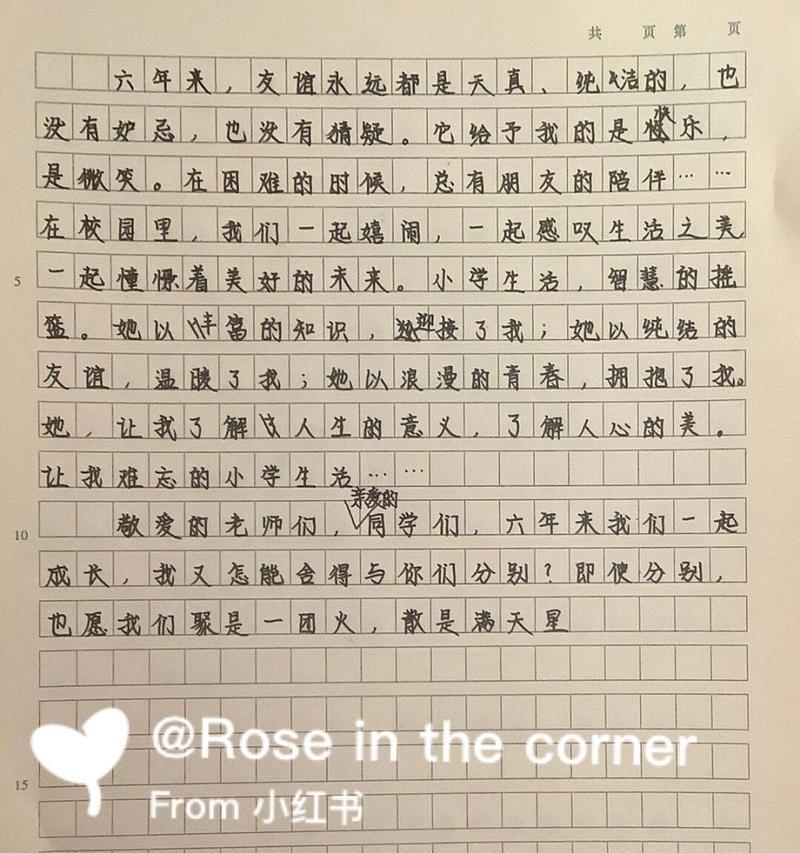 共 页 第 页
六年来，友谊永远都是天真、纯洁的，也
没有妒忌，也没有猜疑。它给予我的是快乐，
是微笑。在困难的时候，总有朋友的陪伴……
在校园里，我们一起嬉闹，一起感叹生活之美，
5 一起憧憬着美好的未来。小学生活，智慧的摇
篮。她以丰富的知识，迎接了我；她以纯结的
友谊，温暖了我；她以浪漫的青春，拥抱了我。
她，让我了解人生的意义，了解人心的美。
让我难忘的小学生活……
10 敬爱的老师们，亲爱的同学们，六年来我们一起
成长，我又怎能舍得与你们分别？即使分别，
也愿我们聚是一团火，散是满天星
@Rose in the corner
15
From 小红书